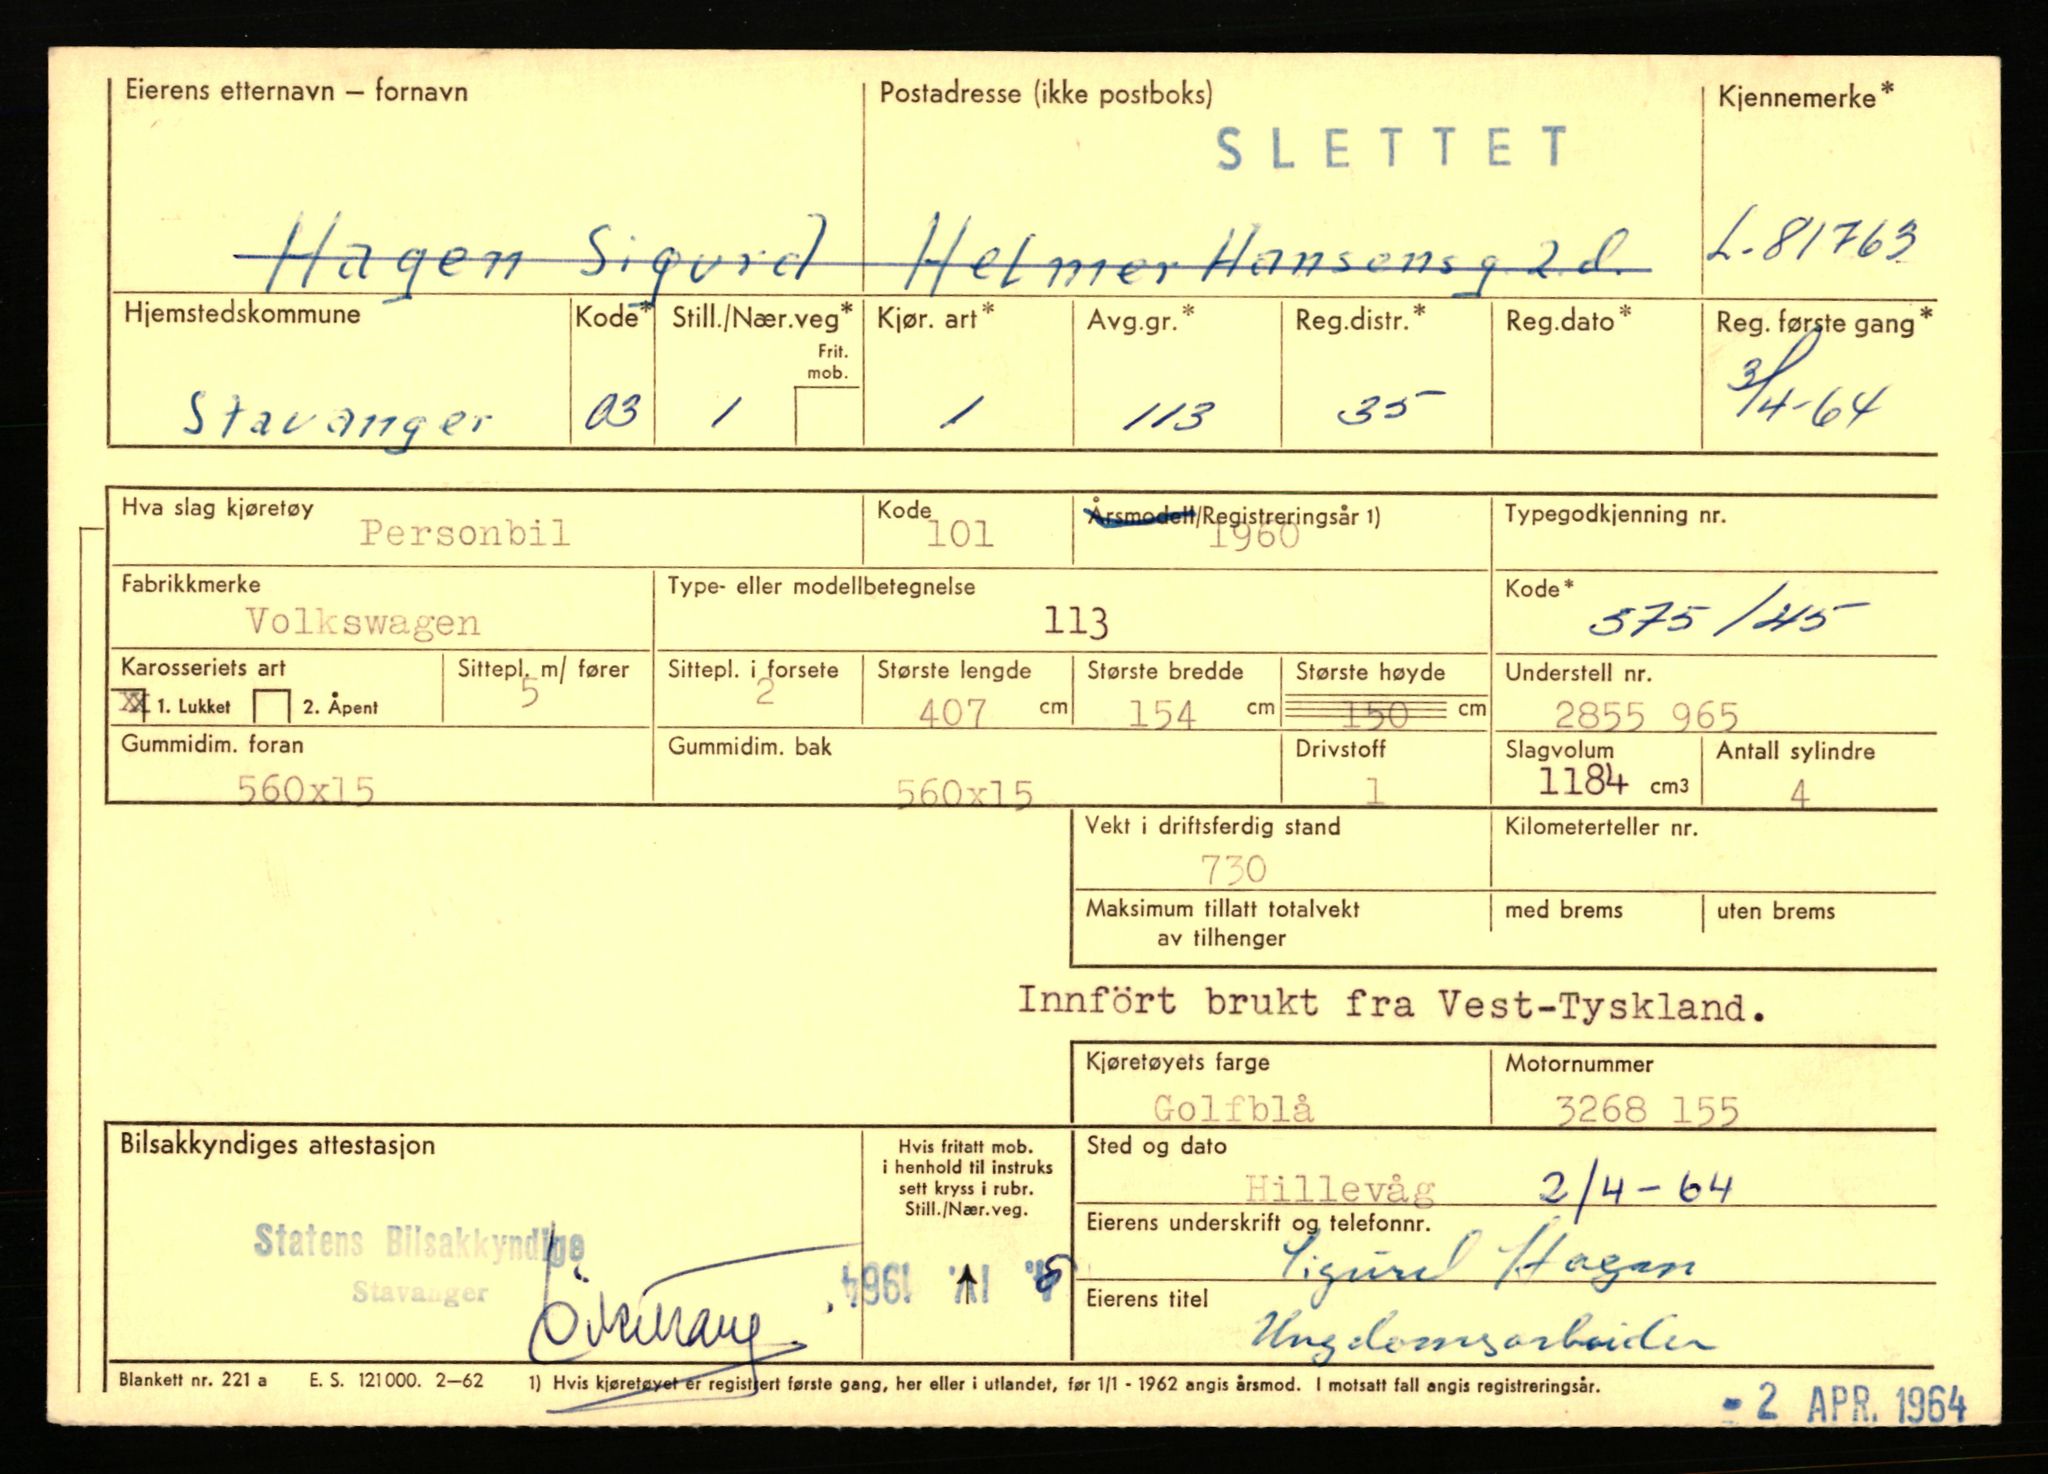 Eierens etternavn – fornavn Postadresse (ikke postboks) Kjennemerke*
SLETTET
Hagen Sigurd Helmer Hansensg. 2.d. L-81763
Hjemstedskommune Kode* Still./Nær.veg* Kjør. art* Avg.gr.* Reg.distr.* Reg.dato* Reg. første gang*
Frit.
mob.
Stavanger 03 1 1 113 35 3/4-64
Hva slag kjøretøy Kode Årsmodell/Registreringsår 1) Typegodkjenning nr.
Personbil 101 1960
Fabrikkmerke Type- eller modellbetegnelse Kode*
Volkswagen 113 575/45
Karosseriets art Sittepl. m/ fører Sittepl. i forsete Største lengde Største bredde Største høyde Understell nr.
XX 1. Lukket 2. Åpent 5 2 407 cm 154 cm 150 cm 2855 965
Gummidim. foran Gummidim. bak Drivstoff Slagvolum Antall sylindre
560x15 560x15 1 1184 cm3 4
Vekt i driftsferdig stand Kilometerteller nr.
730
Maksimum tillatt totalvekt med brems uten brems
av tilhenger
Innfört brukt fra Vest-Tyskland.
Kjøretøyets farge Motornummer
Golfblå 3268 155
Bilsakkyndiges attestasjon Hvis fritatt mob. Sted og dato
i henhold til instruks
sett kryss i rubr.
Still./Nær.veg.
Hillevåg 2/4-64
Eierens underskrift og telefonnr.
Statens Bilsakkyndige
Stavanger
Sigurd Hagen
4. IV. 1964
Eierens titel
Ungdomsarbeider
Blankett nr. 221 a E. S. 121000. 2–62 1) Hvis kjøretøyet er registrert første gang, her eller i utlandet, før 1/1 - 1962 angis årsmod. I motsatt fall angis registreringsår.
- 2 APR. 1964